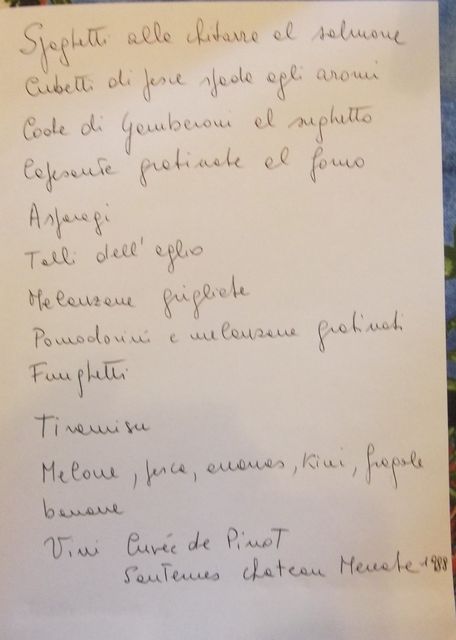 Spaghetti alla chitarra al salmone
Cubetti di pesce spada agli aromi
Code di Gamberoni al sughetto
Capesante gratinate al forno
Asparagi
Talli dell'aglio
Melanzane grigliate
Pomodorini e melanzane gratinati
Funghetti
Tiramisu
Melone, pesca, ananas, Kiwi, fragole
banane
Vini Cuvée de Pinot
Sauternes chateau 1988